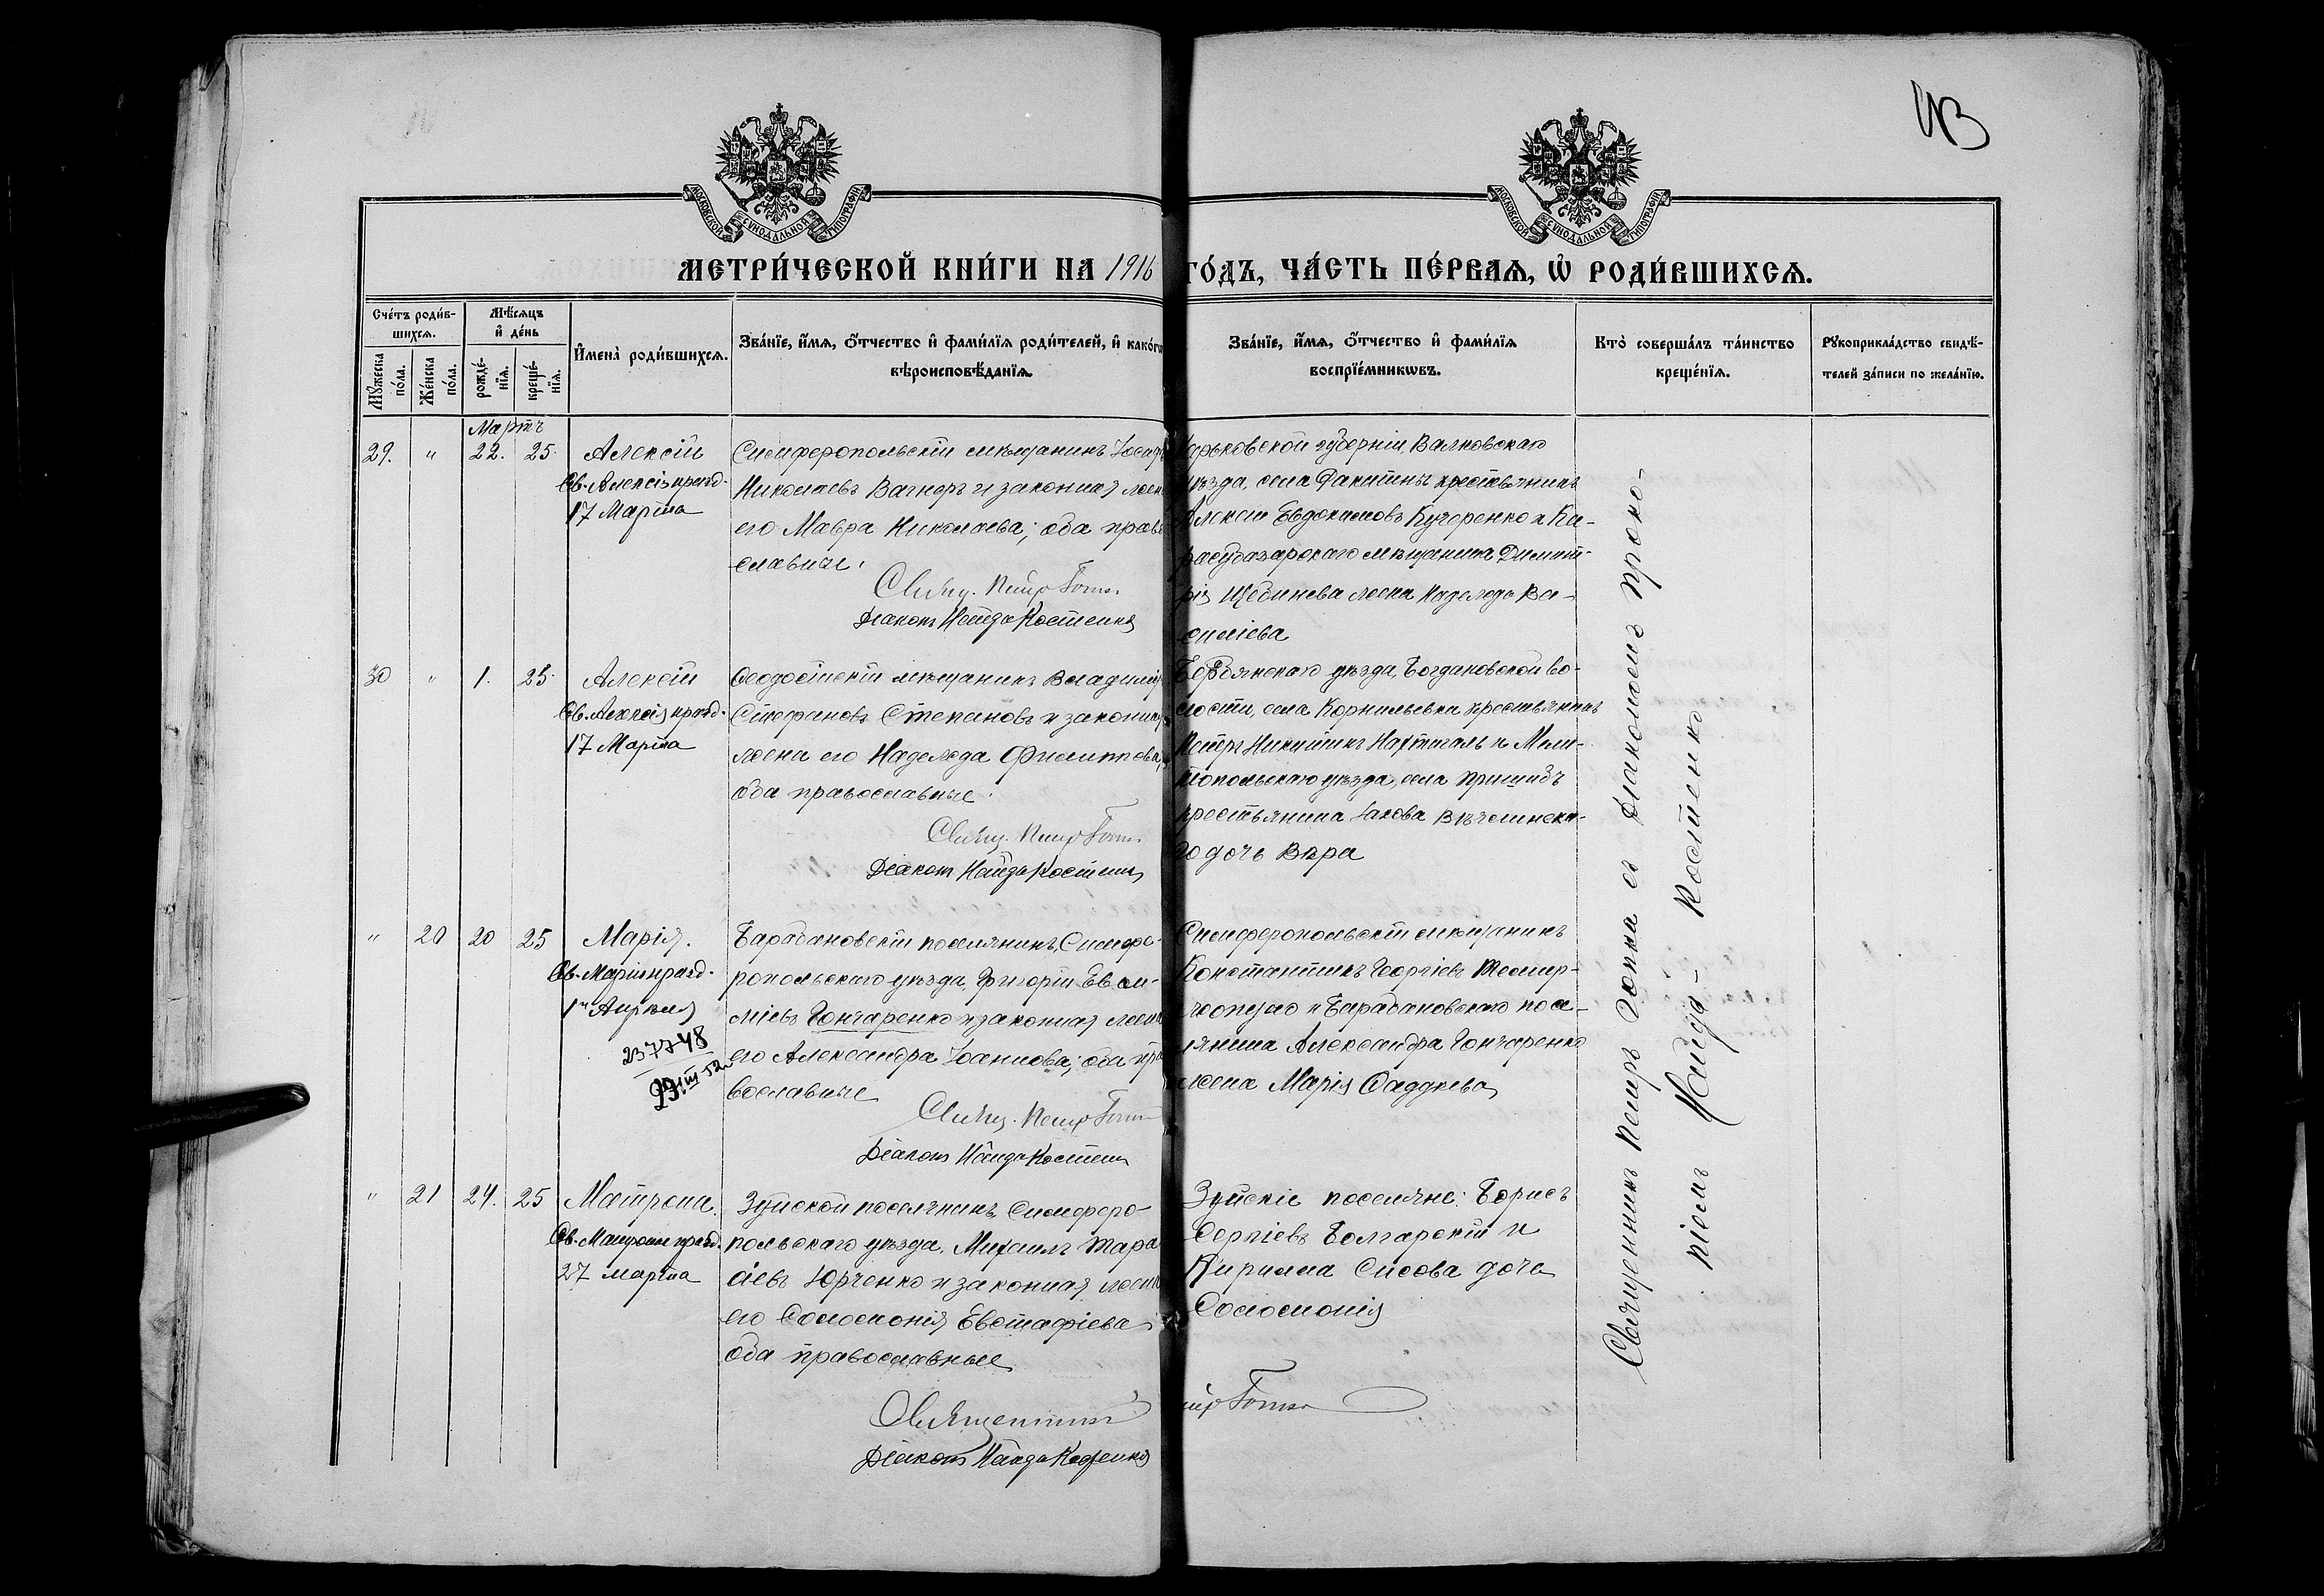 43
МОСКОВСКОЙ СѴНОДАЛЬНОЙ ТИПОГРАФІИ
МОСКОВСКОЙ СѴНОДАЛЬНОЙ ТИПОГРАФІИ
МЕТРИ́ЧЕСКОЙ КНИ́ГИ НА 1916 ГО́ДЪ, ЧА́СТЬ ПЕ́РВАѦ, Ѡ҆ РОДИ́ВШИХСѦ.
Счéтъ роди́в-
шихсѧ.
Мѣ́сѧцъ
и҆ де́нь
Мꙋ́жеска
по́ла.
Же́нска
по́ла.
рожде́-
нїѧ.
креще́-
нїѧ.
И҆мена̀ роди́вшихсѧ.
Зва́нїе, и҆́мѧ, ѻ҆́тчество и҆ фами́лїѧ роди́телей, и҆ како́гѡ
вѣроисповѣ́данїѧ.
Зва́нїе, и҆́мѧ, ѻ҆́тчество и҆ фами́лїѧ
воспрїе́мникѡвъ.
Кто̀ соверша́лъ та́инство
креще́нїѧ.
Рꙋкоприкла́дство свидѣ́-
телей за́писи по жела́нїю.
Мартъ
29. " 22. 25. Алексій
Св. Алексія празд.
17 Марта
Симферопольскій мѣщанинъ Іосифъ
Николаевъ Вагнеръ и законная жена
его Мавра Николаева; оба право
славные.
Свящ. Петръ Гопка
Діаконъ Найда Костенко
Харьковской губерніи, Валковскаго
уѣзда, села Ракитнъ крестьянинъ
Алексѣй Евдокимовъ Кучеренко и Ка-
расубазарскаго мѣщанина Димит-
рія Щебинева жена Надежда Ва-
силіева
30 " 1. 25. Алексій
Св. Алексія празд.
17 Марта
Ѳеодосійскій мѣщанинъ Владиміръ
Стефановъ Степановъ и законная
жена его Надежда Филиппова,
оба православные.
Свящ. Петръ Гопка
Діаконъ Найда Костенко
Бердянскаго уѣзда, Богдановской во-
лости, села Корнильевки крестьянинъ
Петръ Никитинъ Нахтигаль и Мели-
топольскаго уѣзда, села Пришибъ
крестьянина Іакова
го дочь Вѣра
" 20 20 25 Марія.
Св. Маріи празд.
1го Апрѣля
237748
29 III 52
Барабановскій поселянинъ, Симфе-
ропольскаго уѣзда, Григорій Евѳи-
міевъ Гончаренко и законная жена
его Александра Іоаннова; оба пра
вославные
Свящ. Петръ Гопка
Діаконъ Найда Костенко
Симферопольскій мѣщанинъ
Константинъ Георгіевъ
и Барабановскаго посе-
лянина Александра Гончаренко
жена Марія Ѳаддѣева
" 21 24. 25 Матрона.
Св. Матроны празд.
27 марта
Зуйской поселянинъ, Симферо-
польскаго уѣзда, Михаилъ Тара
сіевъ Юрченко и законная жена
его Соломонія Евстафіева;
оба православные
Священникъ Петръ Гопка
Діаконъ Найда Костенко
Зуйскіе поселяне: Борисъ
Сергіевъ Болгарскій и
Кирилла Сисова дочь
Соломонія
Священникъ Петръ Гопка съ Діакономъ Проко-
піемъ Найда-Костенко